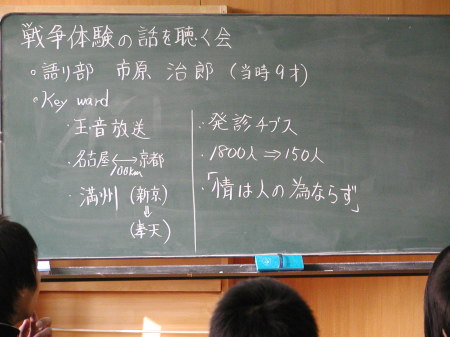 戦争体験の話を聴く会
○語り部 市原 治郎 (当時9才)
○Key ward
・王音放送
・名古屋⟷京都
100km
・満州 (新京)
⇓
(奉天)
・発診チブス
・1800人⇒150人
・「情は人の為ならず」